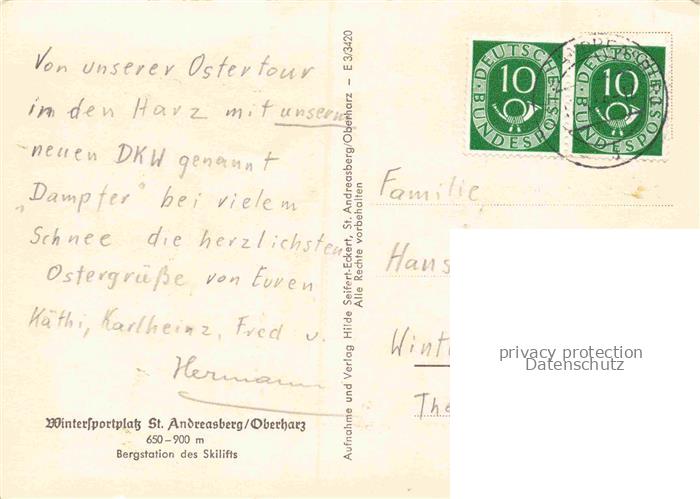 Von unserer Ostertour
in den Harz mit unserm
neuen DKW genannt
„Dampfer" bei vielem
Schnee die herzlichsten
Ostergrüße von Euren
Käthi, Karlheinz, Fred u.
Hermann
Wintersportplatz St. Andreasberg/Oberharz
650–900 m
Bergstation des Skilifts
Aufnahme und Verlag Hilde Seifert-Eckert, St. Andreasberg/Oberharz – E 3/3420
Alle Rechte vorbehalten
10
DEUTSCHE
BUNDESPOST
10
DEUTSCHE
BUNDESPOST
Familie
Hans
Wint
The
privacy protection
Datenschutz